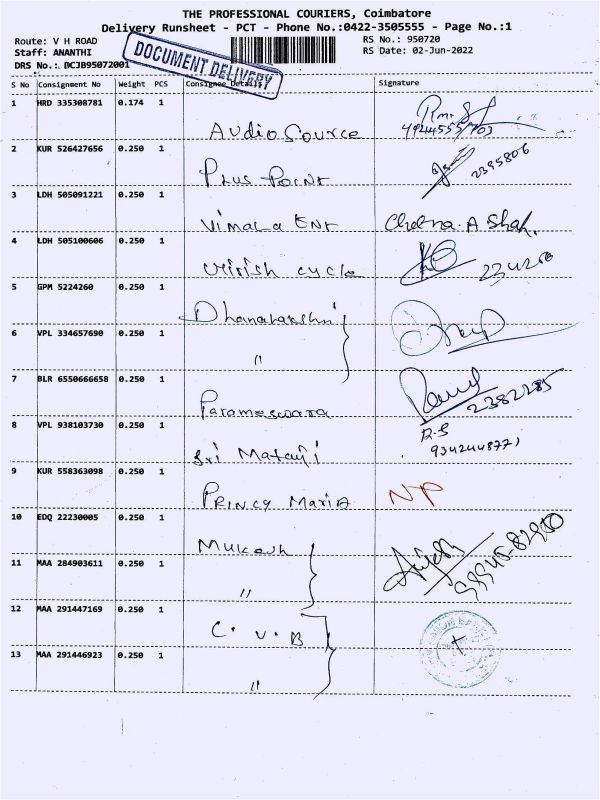 THE PROFESSIONAL COURIERS, Coimbatore
Delivery Runsheet - PCT - Phone No.:0422-3505555 - Page No.:1
Route: V H ROAD RS No.: 950720
Staff: ANANTHI RS Date: 02-Jun-2022
DRS No.: DCJB95072001
DOCUMENT DELIVERY
S No Consignment No Weight PCS Consignee Details Signature
1 HRD 335308781 0.174 1
Audio Source
2 KUR 526427656 0.250 1
Plus Point 2395806
3 LDH 505091221 0.250 1
Vimala Ent Chetna.A Shah.
4 LDH 505100606 0.250 1
cycle
5 GPM 5224260 0.250 1
Dhanalakshmi
6 VPL 334657690 0.250 1
"
7 BLR 6550666658 0.250 1
Parameswara 2382285
8 VPL 938103730 0.250 1 R.S
Sri Mataji 9342448771
9 KUR 558363098 0.250 1
Princy Maria NP
10 EDQ 22230005 0.250 1
Mukesh
11 MAA 284903611 0.250 1
"
12 MAA 291447169 0.250 1
C. V. B
13 MAA 291446923 0.250 1
"